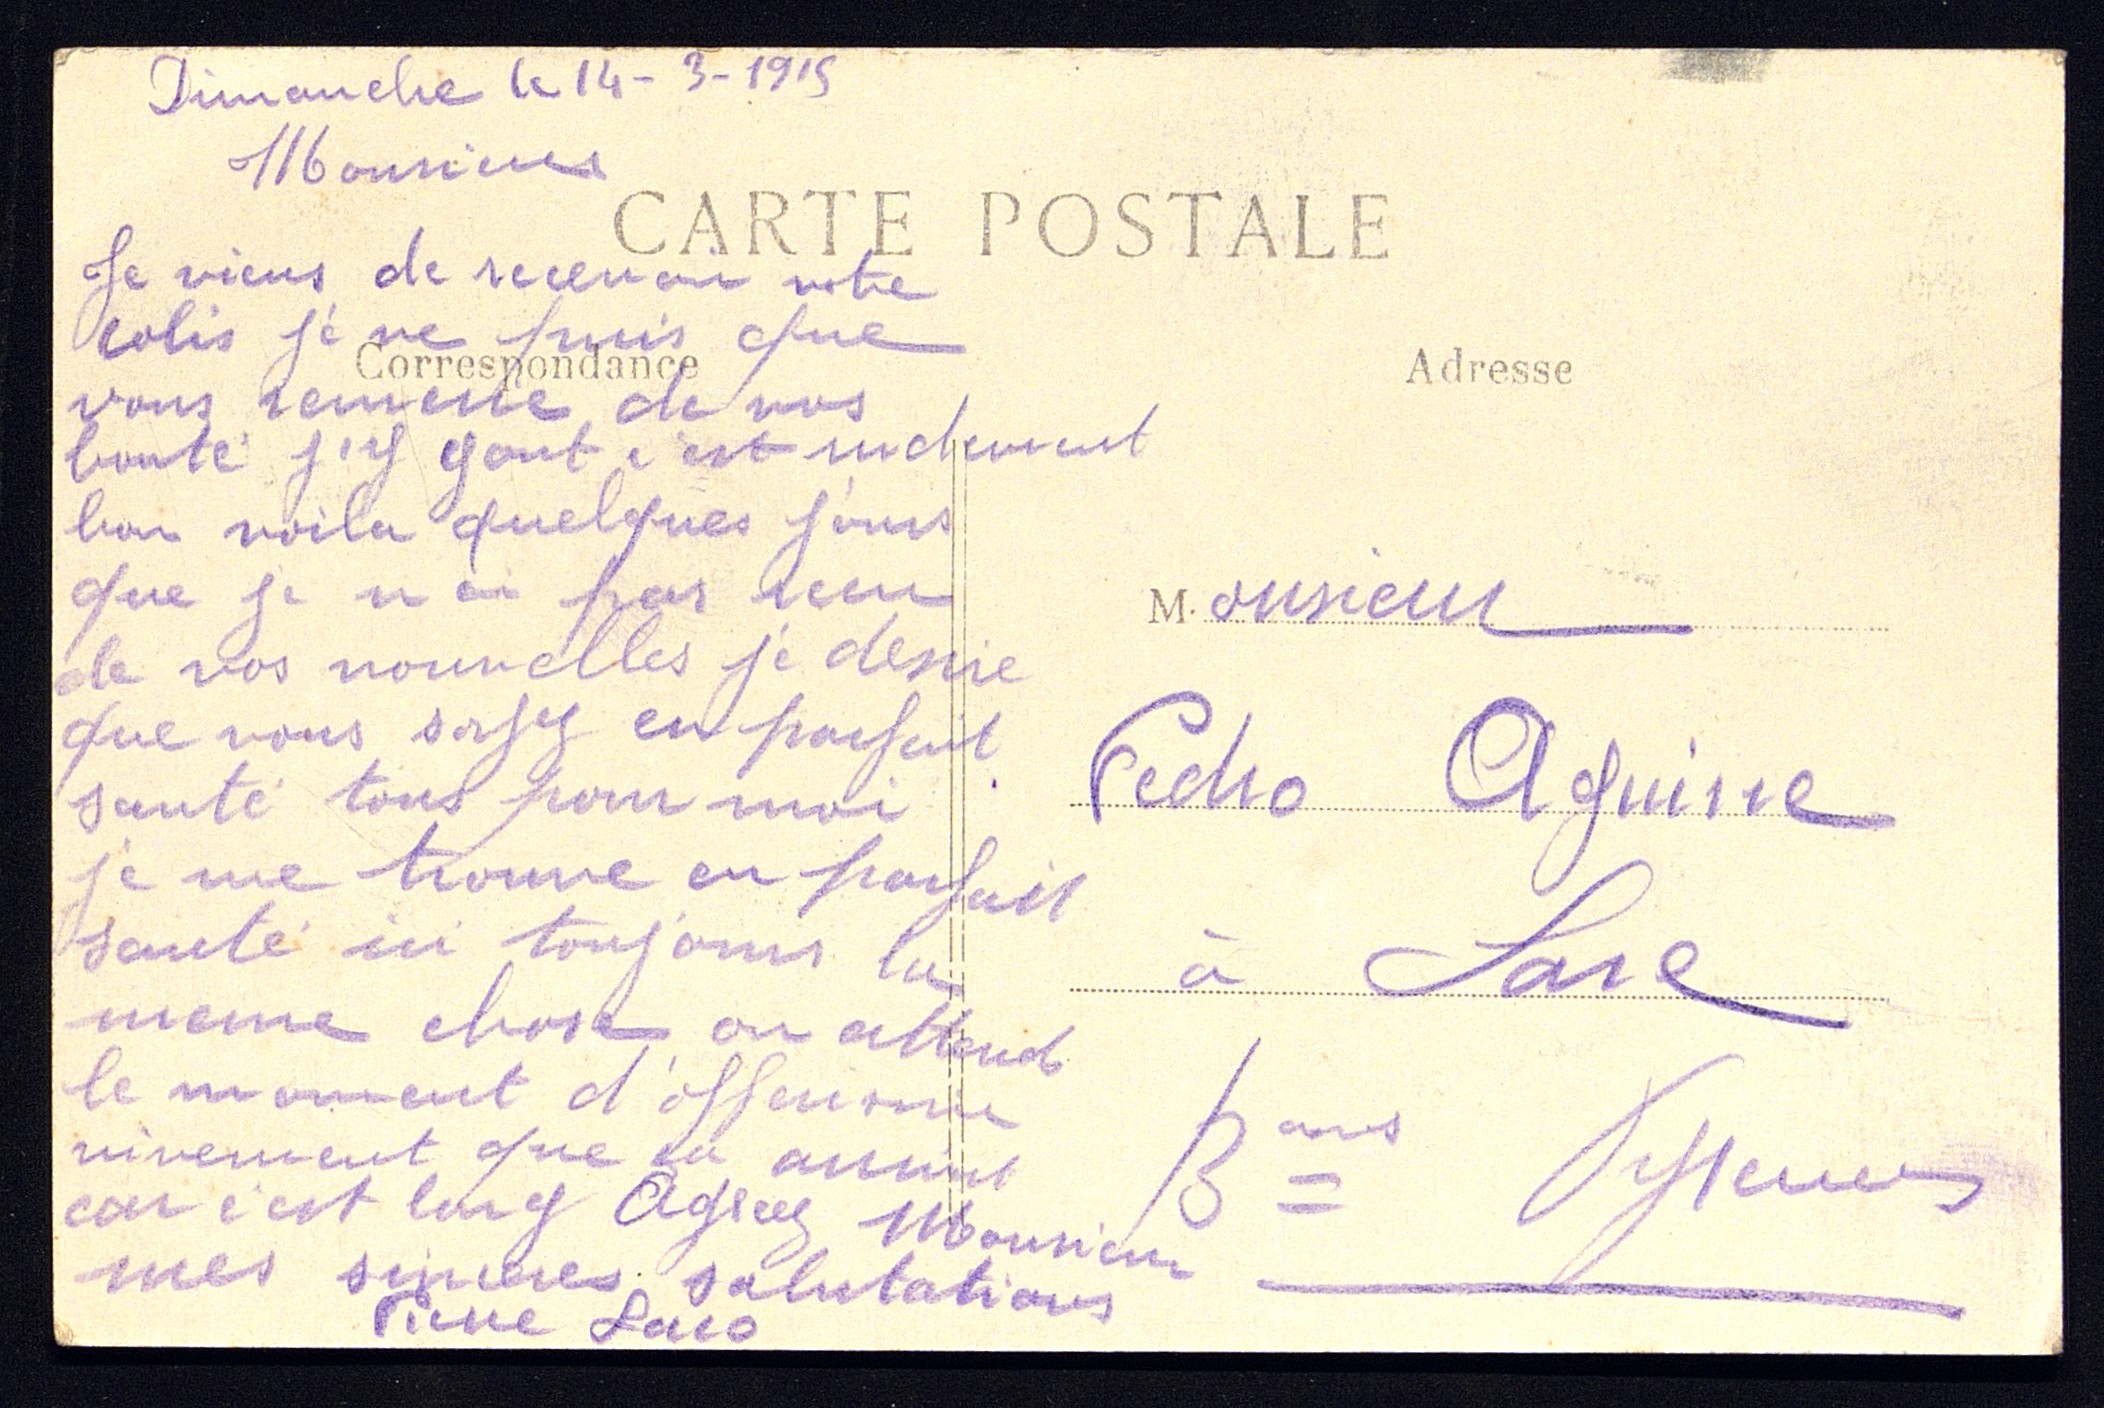 Dimanche le 14-3-1915
Monsieur
CARTE POSTALE
Je viens de recevoir votre
colis je ne puis que
Correspondance
vous remercie de vos
bonté j'y gout c'est rudement
bon voila quelques jours
que je n ai pas recu
de vos nouvelles je desire
que vous soyez en parfait
santé tous pour moi
je me trouve en parfait
santé ici toujours la
meme chose on attend
le moment d'offensive
vivement que sa
car c'est long Agreez Monsieur
mes sinceres salutations
Pierre
Adresse
Monsieur
Pedro Aguirre
à Sare
Bses Pyrenees